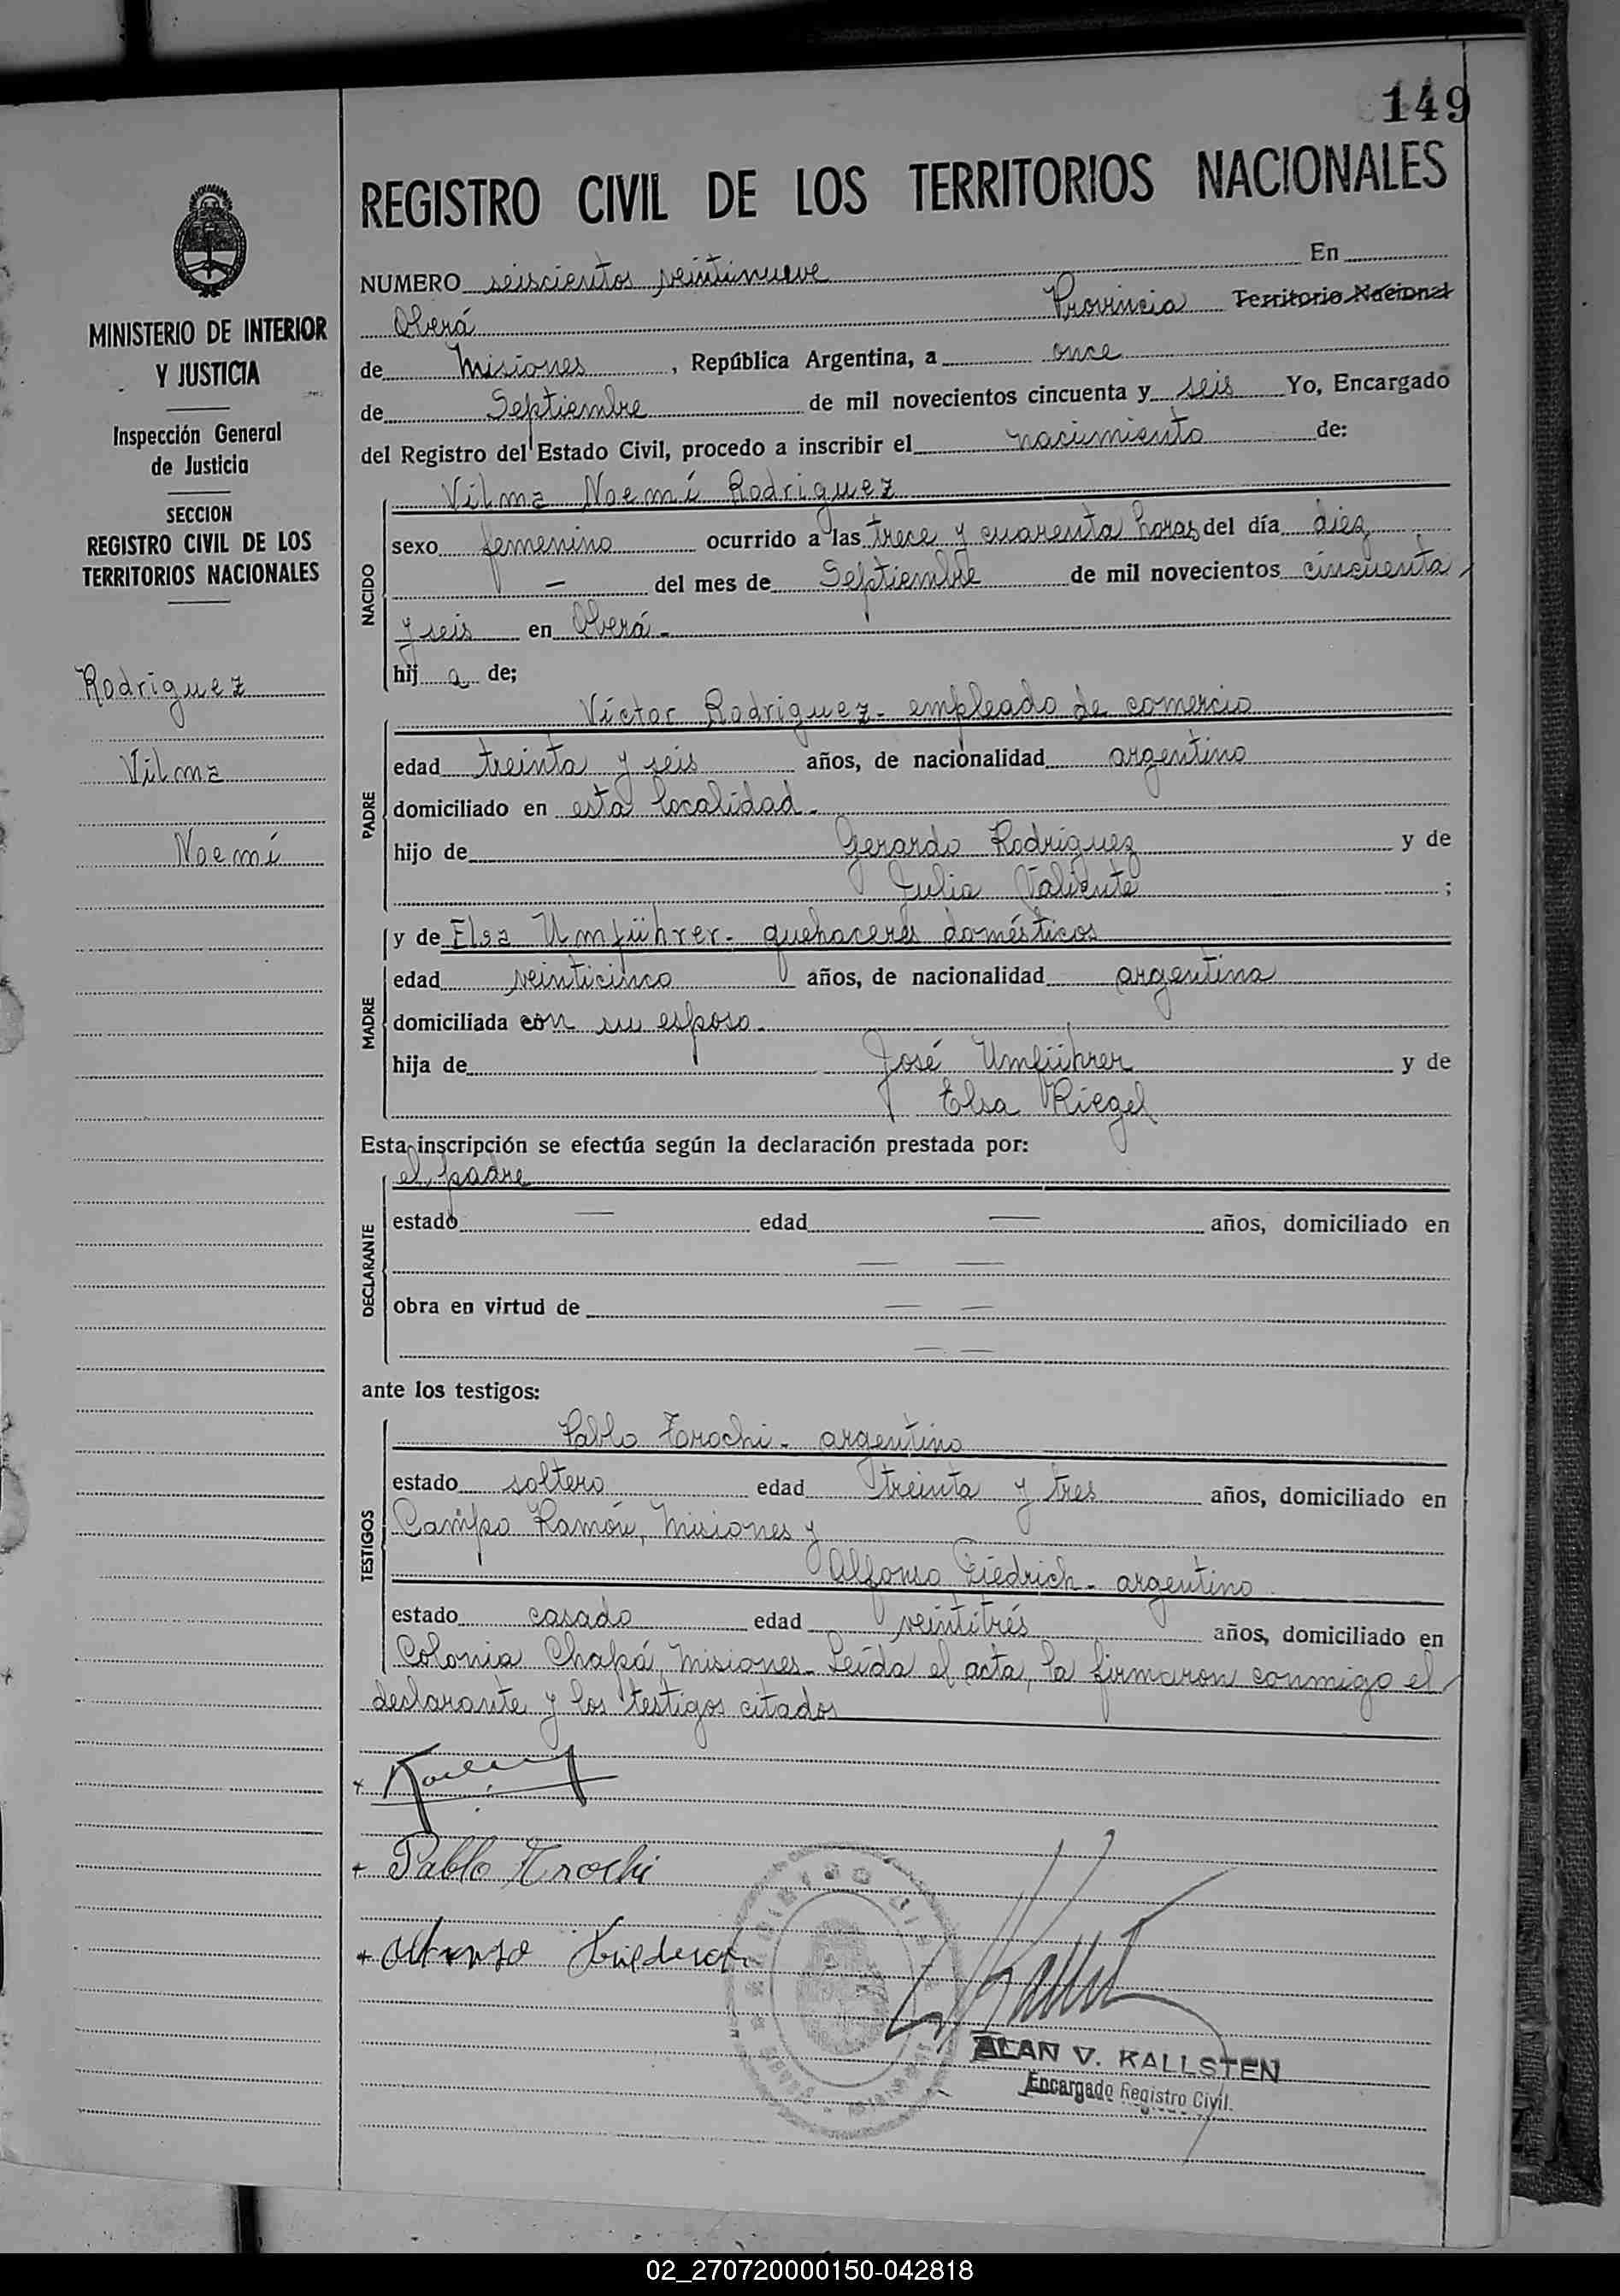 149
REGISTRO CIVIL DE LOS TERRITORIOS NACIONALES
MINISTERIO DE INTERIOR
Y JUSTICIA
Inspección General
de Justicia
SECCION
REGISTRO CIVIL DE LOS
TERRITORIOS NACIONALES
Rodriguez
Vilma
Noemí
NUMERO seiscientos veintinueve En
Oberá Provincia Territorio Nacional
de Misiones, República Argentina, a once
de Septiembre de mil novecientos cincuenta y seis Yo, Encargado
del Registro del Estado Civil, procedo a inscribir el nacimiento de:
NACIDO
Vilma Noemí Rodriguez
sexo femenino ocurrido a las trece y cuarenta horas del día diez
— del mes de Septiembre de mil novecientos cincuenta
y seis en Oberá.-
hij a de;
PADRE
Víctor Rodriguez- empleado de comercio
edad treinta y seis años, de nacionalidad argentino
domiciliado en esta localidad.-
hijo de Gerardo Rodríguez y de
Julia Valiente ;
MADRE
y de Elsa Umführer- quehaceres domésticos
edad veinticinco años, de nacionalidad argentina
domiciliada con su esposo.-
hija de José Umführer y de
Elsa Riegel
Esta inscripción se efectúa según la declaración prestada por:
DECLARANTE
el padre
estado — edad — años, domiciliado en
— —
obra en virtud de — —
— —
ante los testigos:
TESTIGOS
Pablo Trochi- argentino
estado soltero edad treinta y tres años, domiciliado en
Campo Ramón, Misiones y
Alfonso Friedrich- argentino
estado casado edad veintitrés años, domiciliado en
Colonia Chapá, Misiones- Leída el acta, la firmaron conmigo el
declarante y los testigos citados
+ Pablo Trochi
+ Alfonso Friedrich
ALAN V. KALLSTEN
Encargado Registro Civil.
02_270720000150-042818